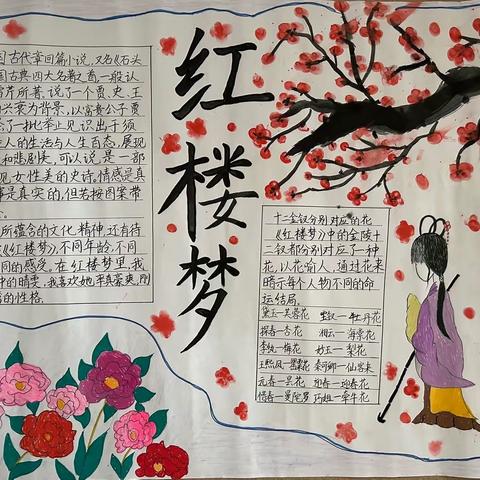 红楼梦
国古代章回篇小说,又名《石头
国古典四大名著之首,一般认
雪芹所著,说了一个贾、史、王
兴衰为背景,以富贵公子贾
示了一批举止见识出于须
人的生活与人生百态,展现
和悲剧美,可以说是一部
现女性美的史诗,情感是真
事是真实的,但若按图索
所蕴含的文化精神,还有待
《红楼梦》,不同年龄、不同
同的感受。在红楼梦里,我
中的晴雯,我喜欢她率真豪爽,刚
的性格。
十二金钗分别对应的花
《红楼梦》中的金陵十
二钗都分别对应了一种
花,以花喻人,通过花来
暗示每个人物不同的命
运结局。
黛玉—芙蓉花 宝钗—牡丹花
探春—杏花 湘云—海棠花
李纨—梅花 妙玉—梨花
王熙凤—罂粟花 秦可卿—仙客来
元春—昙花 迎春—迎春花
惜春—曼陀罗 巧姐—牵牛花